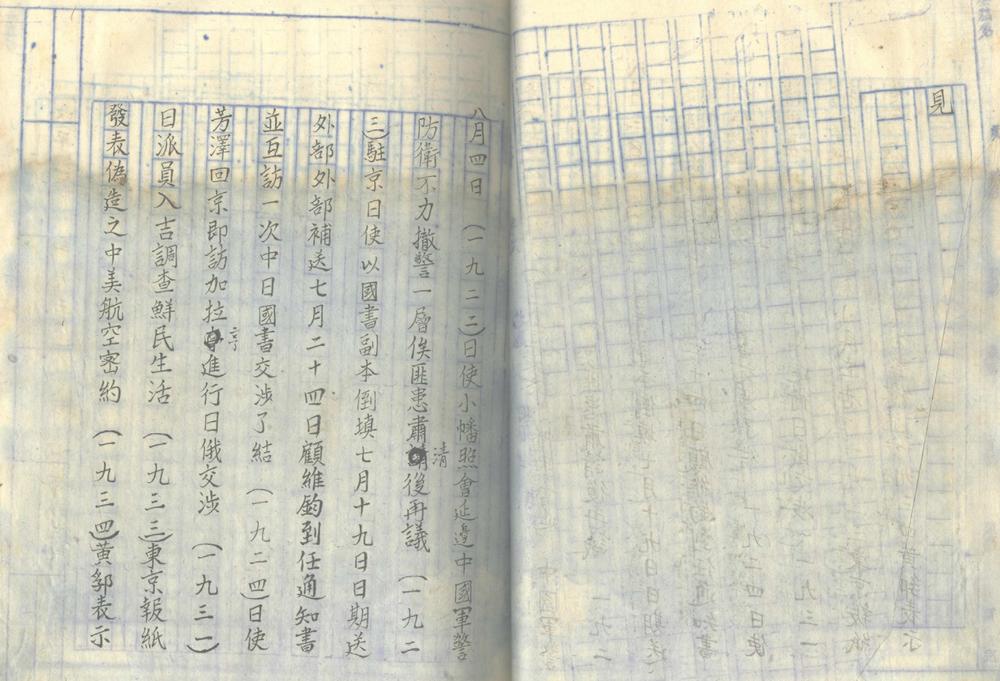 見
八月四日（一九二二）日使小幡照會延邊中國軍警
防衛不力撤警一層俟匪患肅清後再議（一九二
三）駐京日使以國書副本倒填七月十九日日期送
外部外部補送七月二十四日顧維鈞到任通知書
並互訪一次中日國書交涉了結（一九二四）日使
芳澤回京即訪加拉亨進行日俄交涉（一九三一）
日派員入吉調查鮮民生活（一九三三）東京報紙
發表偽造之中美航空密約（一九三四）黃郛表示